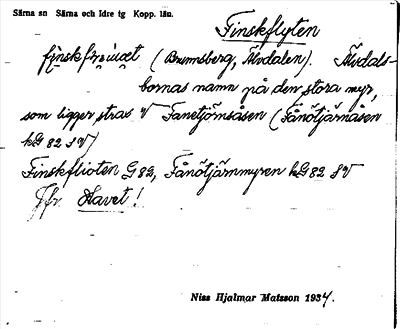 Särna sn Särna och Idre tg Kopp. län.
Finskflyten
(Brunnsberg, Älvdalen). Älvdals-
bornas namn på den stora myr,
som ligger strax V Fanetjörnåsen (Fånötjärnåsen
kG 82 SV)
Finskflioten G 82, Fånötjärnmyren kG 82 SV
Jfr. Havet!
Niss Hjalmar Matsson 1934.